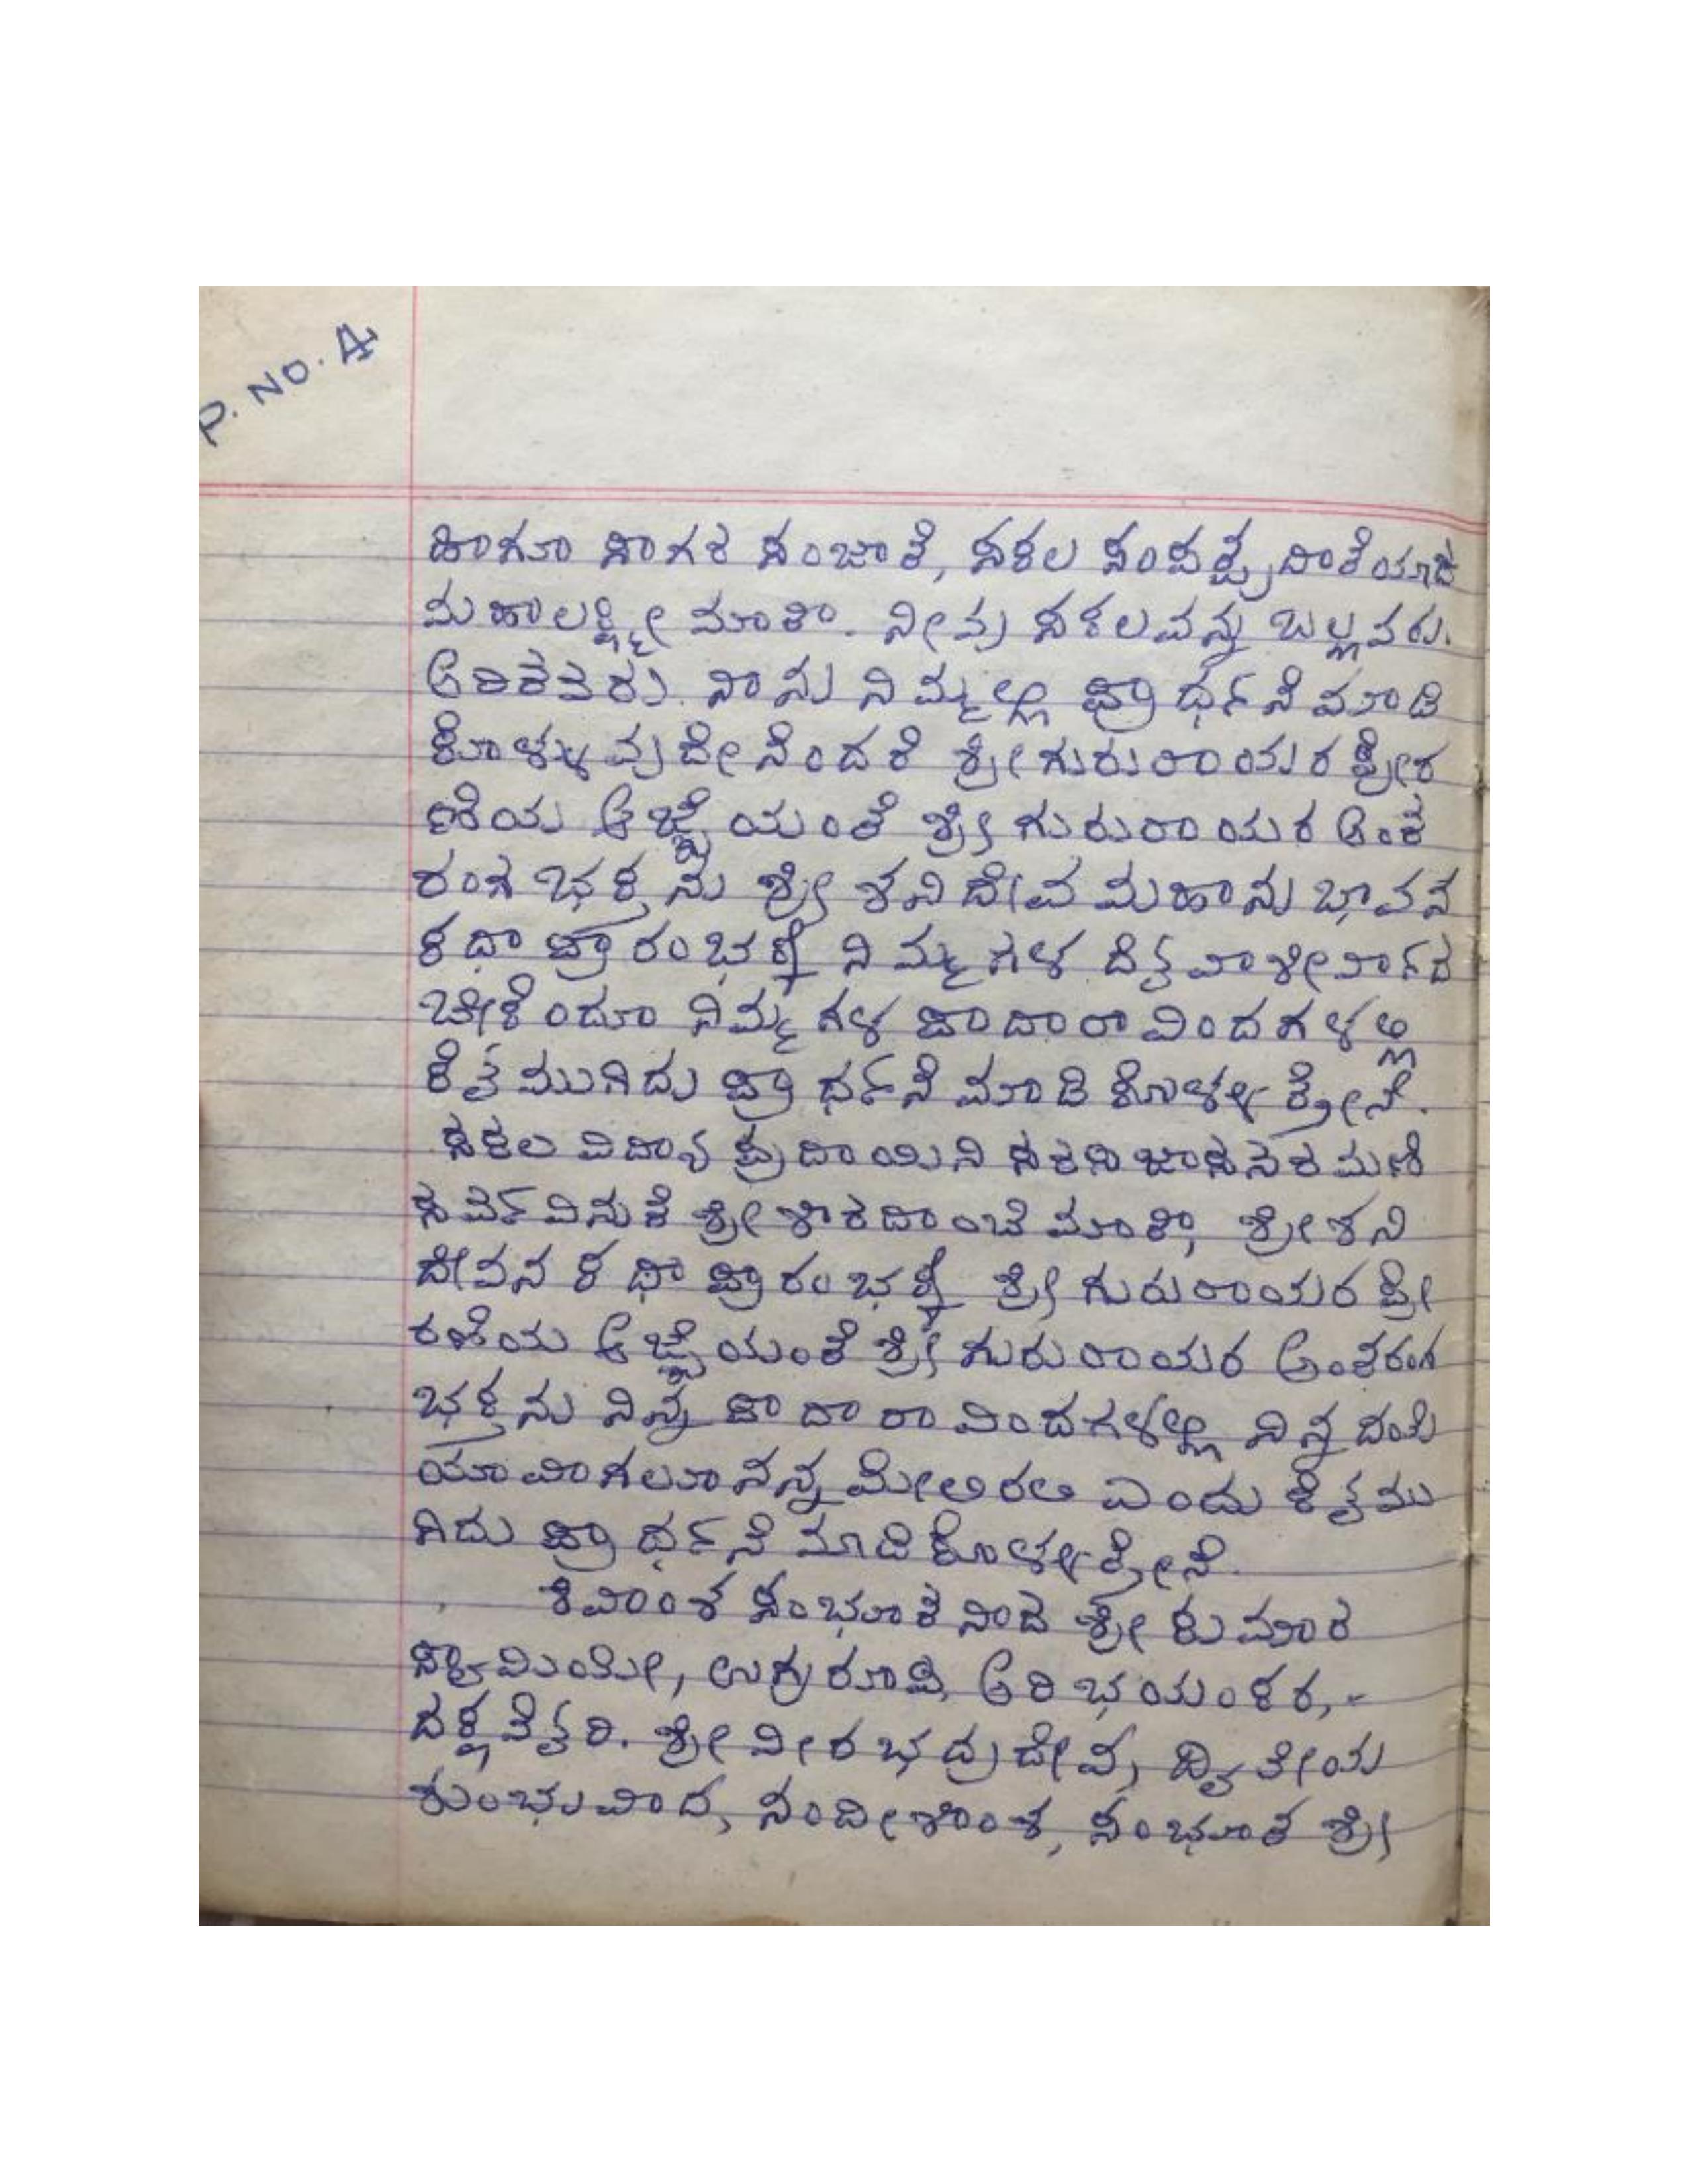 P. NO. 4
ಹಾಗೂ ಸಾಗರ ಸಂಜಾತೆ, ಸಕಲ ಸಂಪತ್ಪ್ರದಾತೆಯಾದ
ಮಹಾಲಕ್ಷ್ಮೀ ಮಾತಾ. ನೀವು ಸಕಲವನ್ನು ಬಲ್ಲವರು.
ಅರಿತವರು. ನಾನು ನಿಮ್ಮಲ್ಲಿ ಪ್ರಾರ್ಥನೆ ಮಾಡಿ
ಕೊಳ್ಳುವುದೇನೆಂದರೆ ಶ್ರೀಗುರುರಾಯರ ಪ್ರೇರ
ಣೆಯ ಆಜ್ಞೆಯಂತೆ ಶ್ರೀ ಗುರುರಾಯರ ಅಂತ
ರಂಗ ಭಕ್ತನು ಶ್ರೀ ಶನಿದೇವ ಮಹಾನುಭಾವನ
ಕಥಾ ಪ್ರಾರಂಭಕ್ಕೆ ನಿಮ್ಮಗಳ ದಿವ್ಯವಾಶೀರ್ವಾದ
ಬೇಕೆಂದೂ ನಿಮ್ಮಗಳ ಪಾದಾರಾವಿಂದಗಳಲ್ಲಿ
ಕೈಮುಗಿದು ಪ್ರಾರ್ಥನೆ ಮಾಡಿಕೊಳ್ಳುತ್ತೇನೆ.
ಸಕಲ ವಿದ್ಯಾ ಪ್ರದಾಯಿನಿ ಸರಸಿಜಾಸನರಮಣಿ
ಸರ್ವವಿನುತೆ ಶ್ರೀ ಶಾರದಾಂಬೆ ಮಾತಾ, ಶ್ರೀ ಶನಿ
ದೇವನ ಕಥಾ ಪ್ರಾರಂಭಕ್ಕೆ ಶ್ರೀ ಗುರುರಾಯರ ಪ್ರೇ
ರಣೆಯ ಆಜ್ಞೆಯಂತೆ ಶ್ರೀ ಗುರುರಾಯರ ಅಂತರಂಗ
ಭಕ್ತನು ನಿನ್ನ ಪಾದಾರಾವಿಂದಗಳಲ್ಲಿ ನಿನ್ನ ದಯೆ
ಯಾವಾಗಲೂ ನನ್ನ ಮೇಲಿರಲಿ ಎಂದು ಕೈಮು
ಗಿದು ಪ್ರಾರ್ಥನೆ ಮಾಡಿಕೊಳ್ಳುತ್ತೇನೆ.
ಶಿವಾಂಶ ಸಂಭೂತನಾದ ಶ್ರೀ ಕುಮಾರ
ಸ್ವಾಮಿಯೇ, ಉಗ್ರರೂಪಿ, ಅರಿ ಭಯಂಕರ,-
ದಕ್ಷವೈರಿ. ಶ್ರೀ ವೀರಭದ್ರದೇವ, ದ್ವಿತೀಯ
ಶಂಭುವಾದ, ನಂದೀಶಾಂಶ, ಸಂಭೂತ ಶ್ರೀ